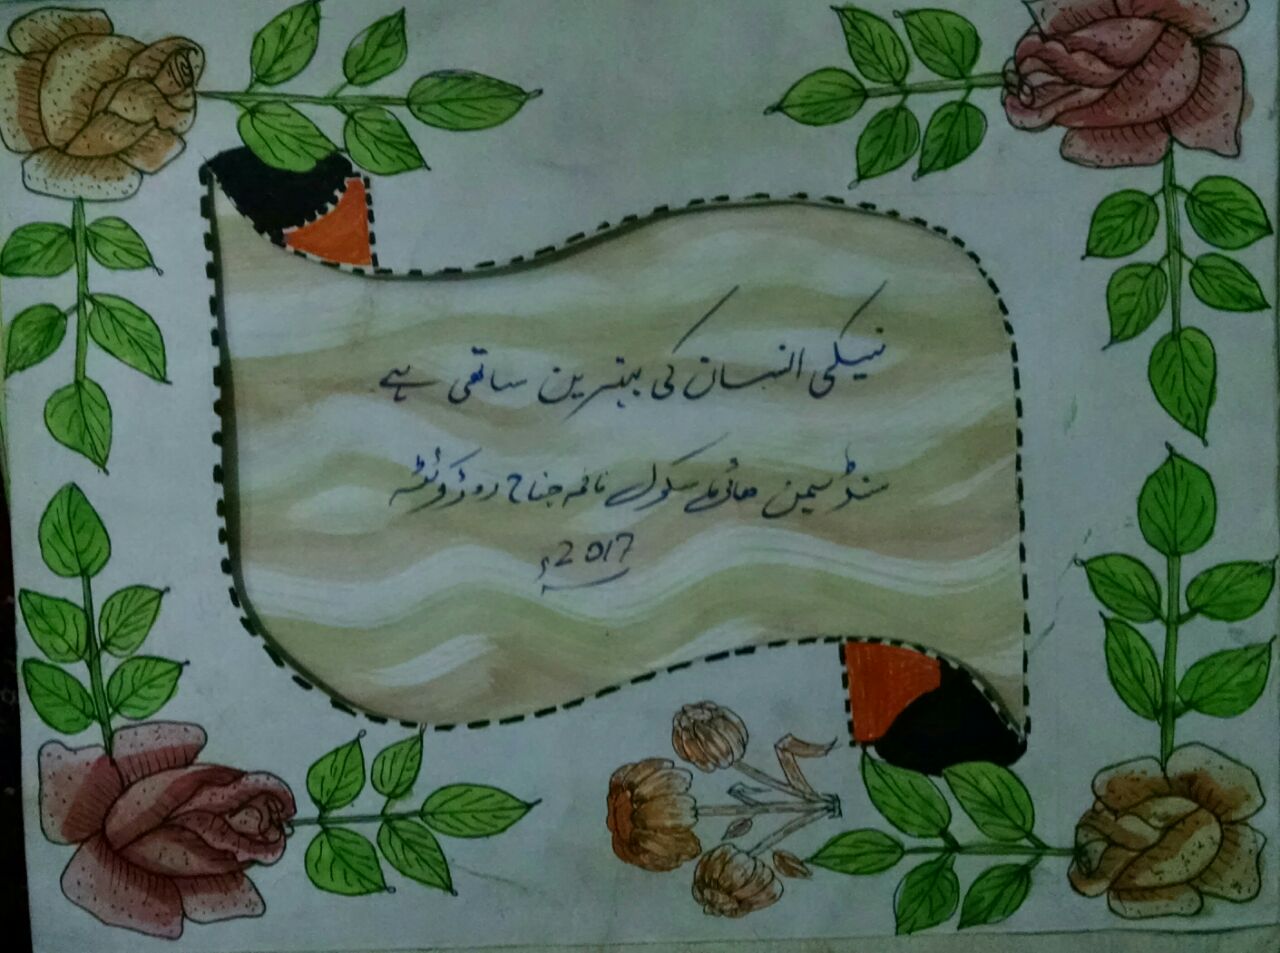 نیکی انسان کی بہترین ساتھی ہے
سنڈیمن ھائی سکول فاطمہ جناح روڈ کوئٹہ
2017ء